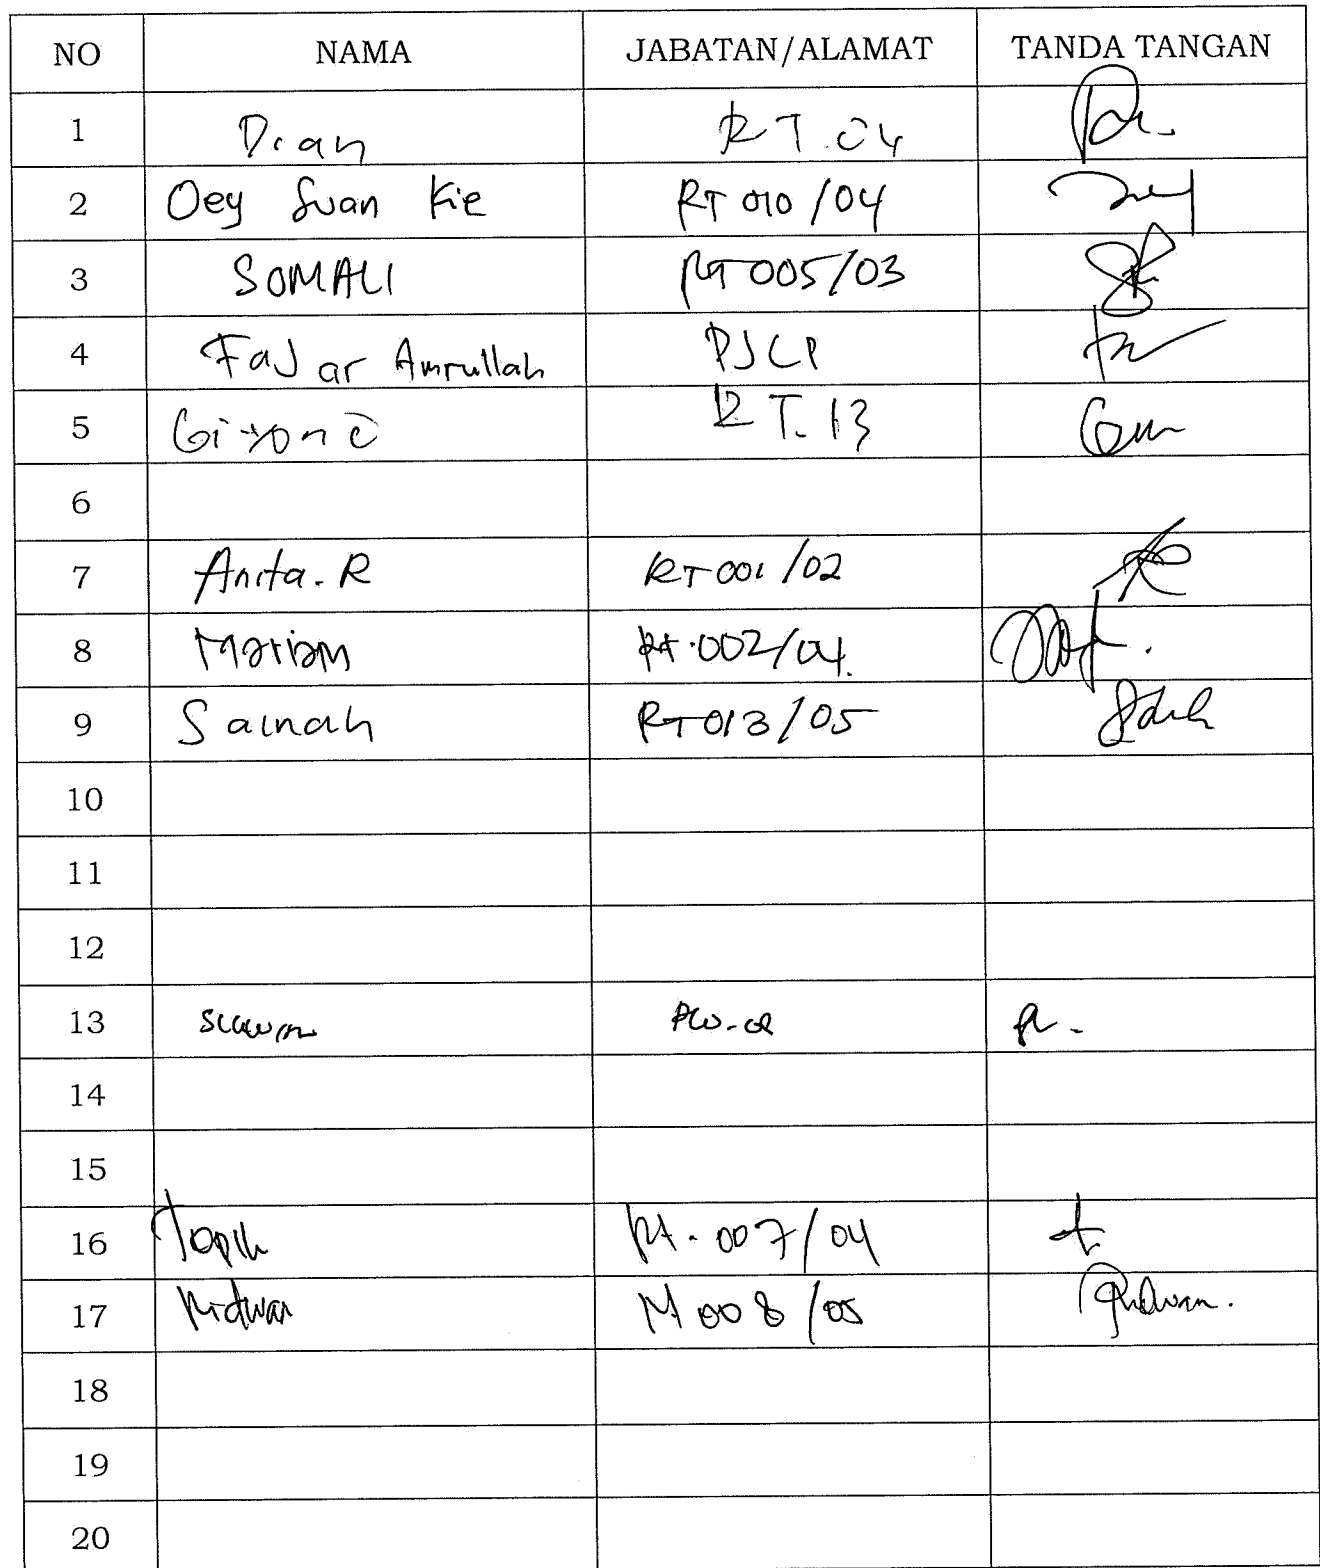 NO NAMA JABATAN/ALAMAT TANDA TANGAN
1 Dian RT.04
2 Oey Suan Kie RT 010/04
3 SOMALI RT 005/03
4 Fajar Amrullah PJLP
5 Giyono RT.13
6
7 Anita.R RT 001/02
8 Mariam Rt.002/04.
9 Sainah RT 013/05
10
11
12
13
14
15
16 Topik Rt.007/04
17 Ridwan Rt 008/05 Ridwan.
18
19
20